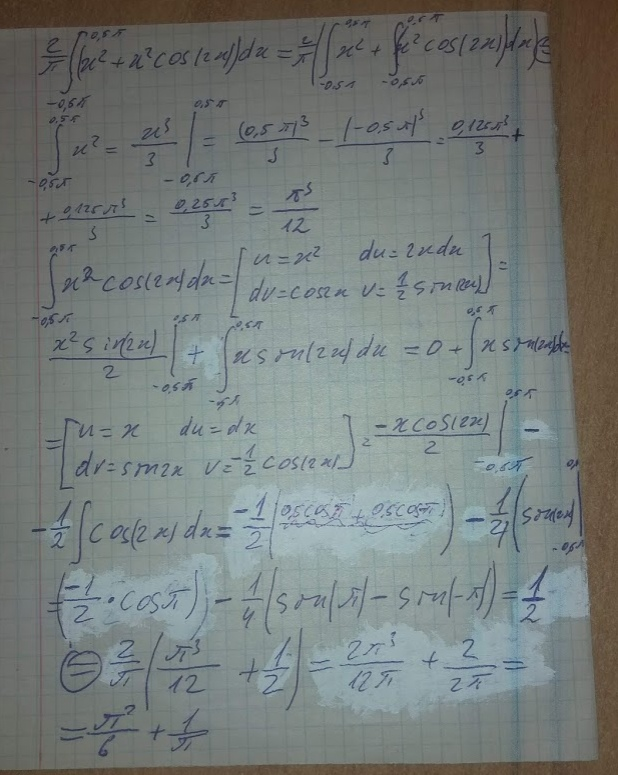 2/π ∫_{-0,5π}^{0,5π} (x² + x² cos(2x)) dx = 2/π (∫_{-0,5π}^{0,5π} x² + ∫_{-0,5π}^{0,5π} x² cos(2x) dx) ⊜
∫_{-0,5π}^{0,5π} x² = x³/3 |_{-0,5π}^{0,5π} = (0,5π)³/3 - (-0,5π)³/3 = 0,125π³/3 +
+ 0,125π³/3 = 0,25π³/3 = π³/12
∫_{-0,5π}^{0,5π} x² cos(2x) dx = [u = x² du = 2x dx
dv = cos2x v = 1/2 sin(2x)] =
x² sin(2x)/2 |_{-0,5π}^{0,5π} + ∫_{-0,5π}^{0,5π} x sin(2x) dx = 0 + ∫_{-0,5π}^{0,5π} x sin(2x) dx =
= [u = x du = dx
dv = sin2x v = -1/2 cos(2x)] = -x cos(2x)/2 |_{-0,5π}^{0,5π} -
- 1/2 ∫ cos(2x) dx = -1/2 (0,5cosπ + 0,5cosπ) - 1/4 (sin(2x) |_{-0,5π}
= (-1/2 · cosπ) - 1/4 (sin(π) - sin(-π)) = 1/2
⊜ 2/π (π³/12 + 1/2) = 2π³/12π + 2/2π =
= π²/6 + 1/π